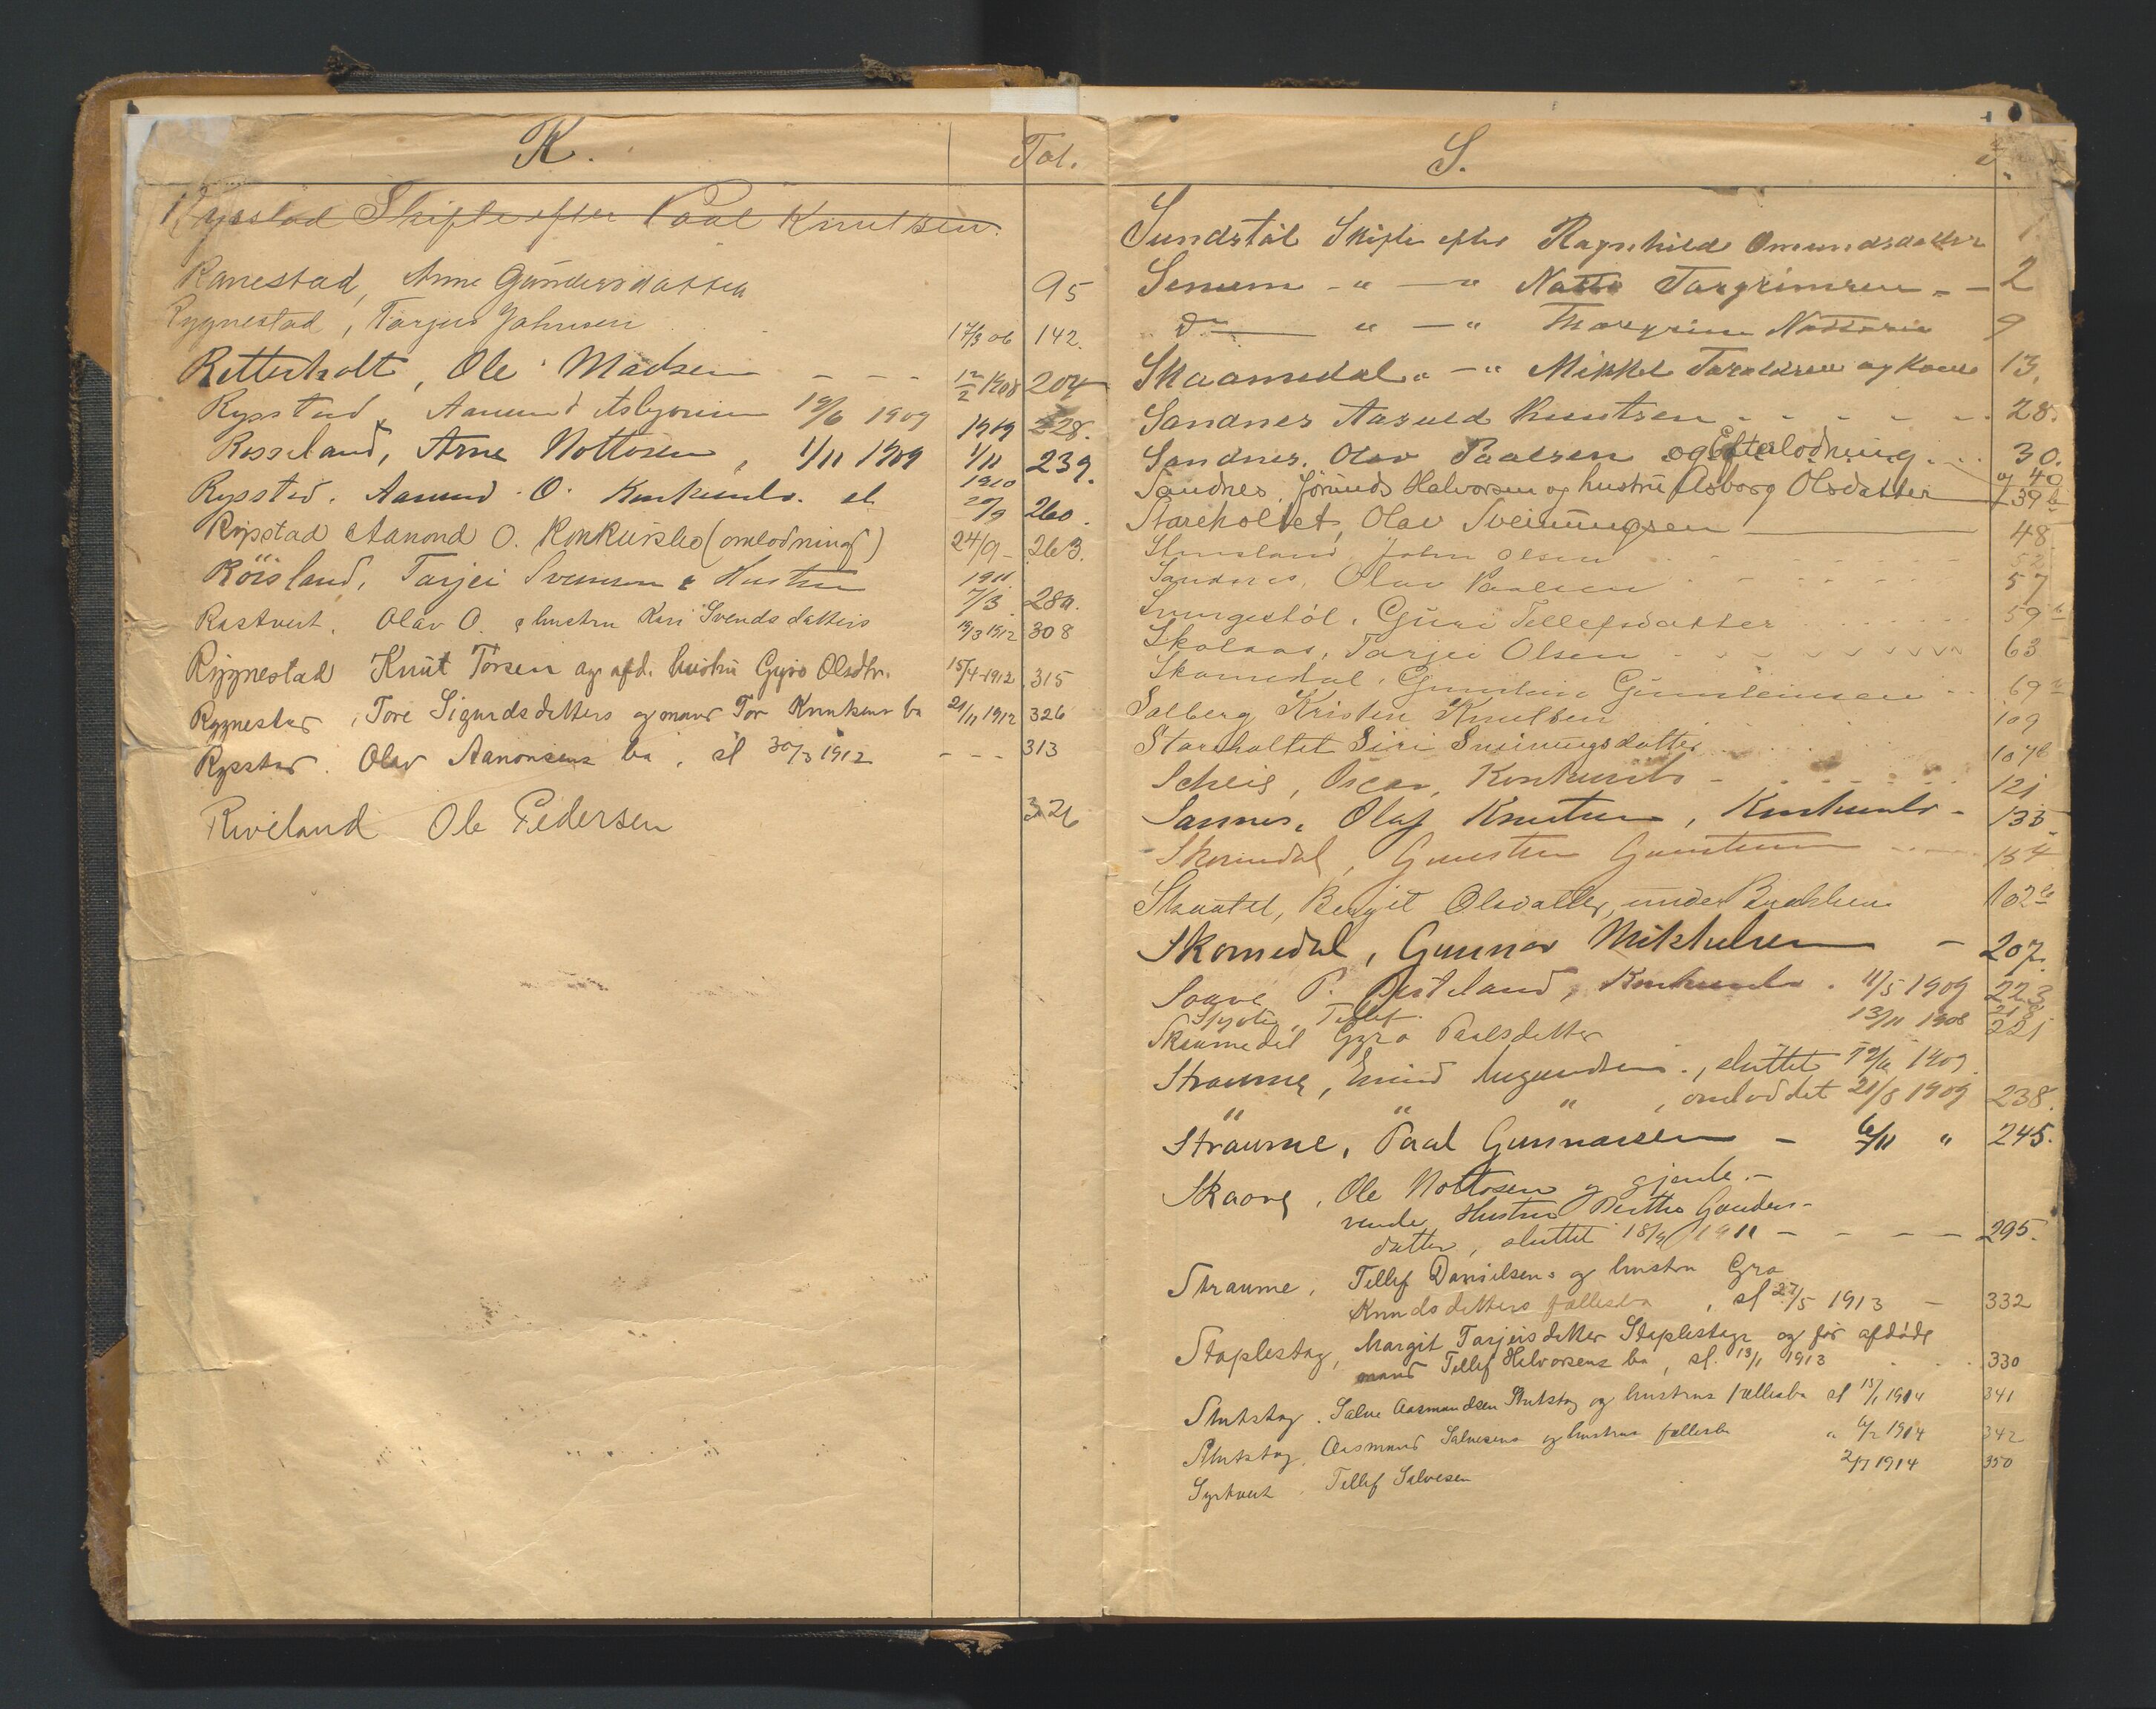 R. Fol.
Rysstad Skifte efter Paal Knutsen.
Ranestad, Anne Gundersdatter 95
Rygnestad, Tarjus Johnsen 17/3 06 142.
Retterholt, Ole Madsen - - - 12/2 1908 204
Rysstad, Aamund Asbjørnsen 19/6 1909 1909 228.
Rosseland, Arne Nottosen, 1/11 1909 1/11 239.
Rysstad. Aamund O. Konkursbo. sl. 1910 20/9 260.
Rysstad Aanond O. Konkursbo (omlodning) 24/9 - 263.
Röisland, Tarjei Svensen & Hustru 1911 7/3 280.
Rastveit. Olav O. & hustru Kari Svendsdatters 19/3 1912 308
Rygnestad Knut Torsen og afd. hustru Gyro Olsdtr. 15/4 1912 315
Rygnestad, Tore Sigurdsdatters og mand Tor Knutsens bo 21/11 1912 326
Rysstad. Olav Aanonsens bo, sl 30/3 1912 - - - 313
Riveland Ole Pedersen 326
S.
Sundstöl Skifte efter Ragnhild Omundsdatter 1.
Senum - " - " Notto Targrimsen - - 2
Do " - " Thorgrim Nottosen 9
Skaamedal " - " Mikkel Taraldsen og Kone 13.
Sandnes Aasuld Knutsen - - - - - 28.
Sandnes. Olav Paalsen og Efterlodning . . . 30. og 40
Sandnes. Jörund Halvorsen og hustru Asborg Olsdatter 39 b
Stareholtet, Olav Sveinungsen 48.
John Olsen 52
Sandnes, Olav Paalsen 57
Guri Tellefsdatter 59 b
Skolaas, Tarjei Olsen 63
Skomedal, Gunstein Gunsteinsen 69 b
Solberg Kristen Knutsen 109
Stareholtet Siri Sveinungsdatter 107 b
Scheie, Oscar, Konkursbo - 121
Sannes, Olaf Knutsen, Konkursbo - 135
Skomedal, Gunsten Gunstensen 154
Bergit Olsdatter, under 102 b
Skomedal, Gunnar Mikkelsen - 207.
P. Besteland, Konkursbo. 11/5 1909 223
Tellef. 13/11 1908 218
Skaamedal Gyro Paalsdatter 221
Straume, Eivind Augundsen, sluttet 19/6 1909.
" " ", omloddet 21/8 1909 238.
Straume, Paal Gunnarsen - 6/11 " 245.
Skaave, Ole Nottosen og gjenle-
vende Hustru Berthe Gunders-
datter, sluttet 18/9 1911 - - - - 295.
Straume, Tellef Danielsen og hustru Gro
Knudsdatters fællesbo, sl 27/5 1913 - 332
Staplestag, Margit Tarjeisdatter Staplestag og før afdøde
mand Tellef Halvorsens bo, sl. 13/1 1913 . . . 330
Stutstag. Salve Aasmundsen Stutstag og hustrus fællesbo sl 15/1 1914 341
Stutstag, Aasmund Salvesens og hustrus fællesbo " 6/2 1914 342
Syrtveit. Tellef Salvesen 2/7 1914 350